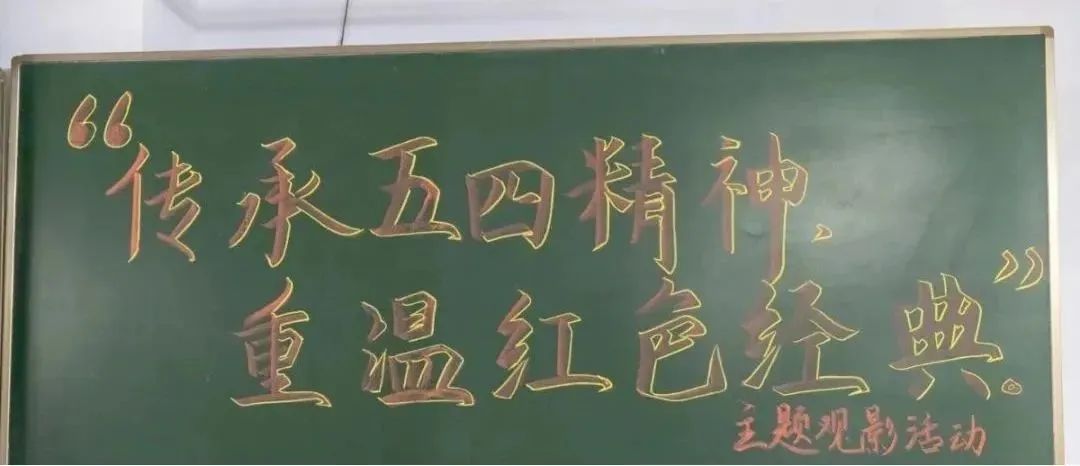 “传承五四精神、
重温红色经典。”
主题观影活动